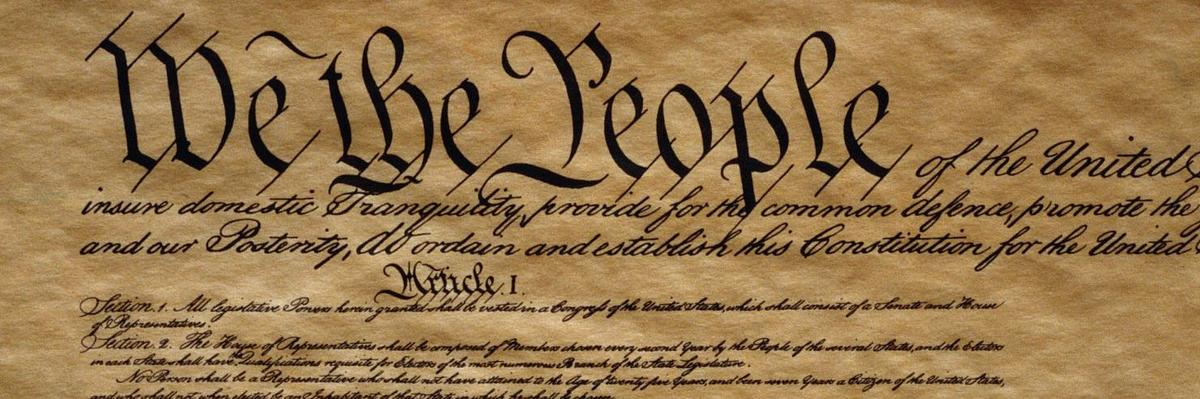 We the People of the United
insure domestic Tranquility, provide for the common defence, promote the
and our Posterity, do ordain and establish this Constitution for the United
Article. I.
Section. 1. All legislative Powers herein granted shall be vested in a Congress of the United States, which shall consist of a Senate and House
of Representatives.
Section. 2. The House of Representatives shall be composed of Members chosen every second Year by the People of the several States, and the Electors
in each State shall have the Qualifications requisite for Electors of the most numerous Branch of the State Legislature.
No Person shall be a Representative who shall not have attained to the Age of twenty five Years, and been seven Years a Citizen of the United States,
and who shall not when elected be an Inhabitant of that State in which he shall be chosen.